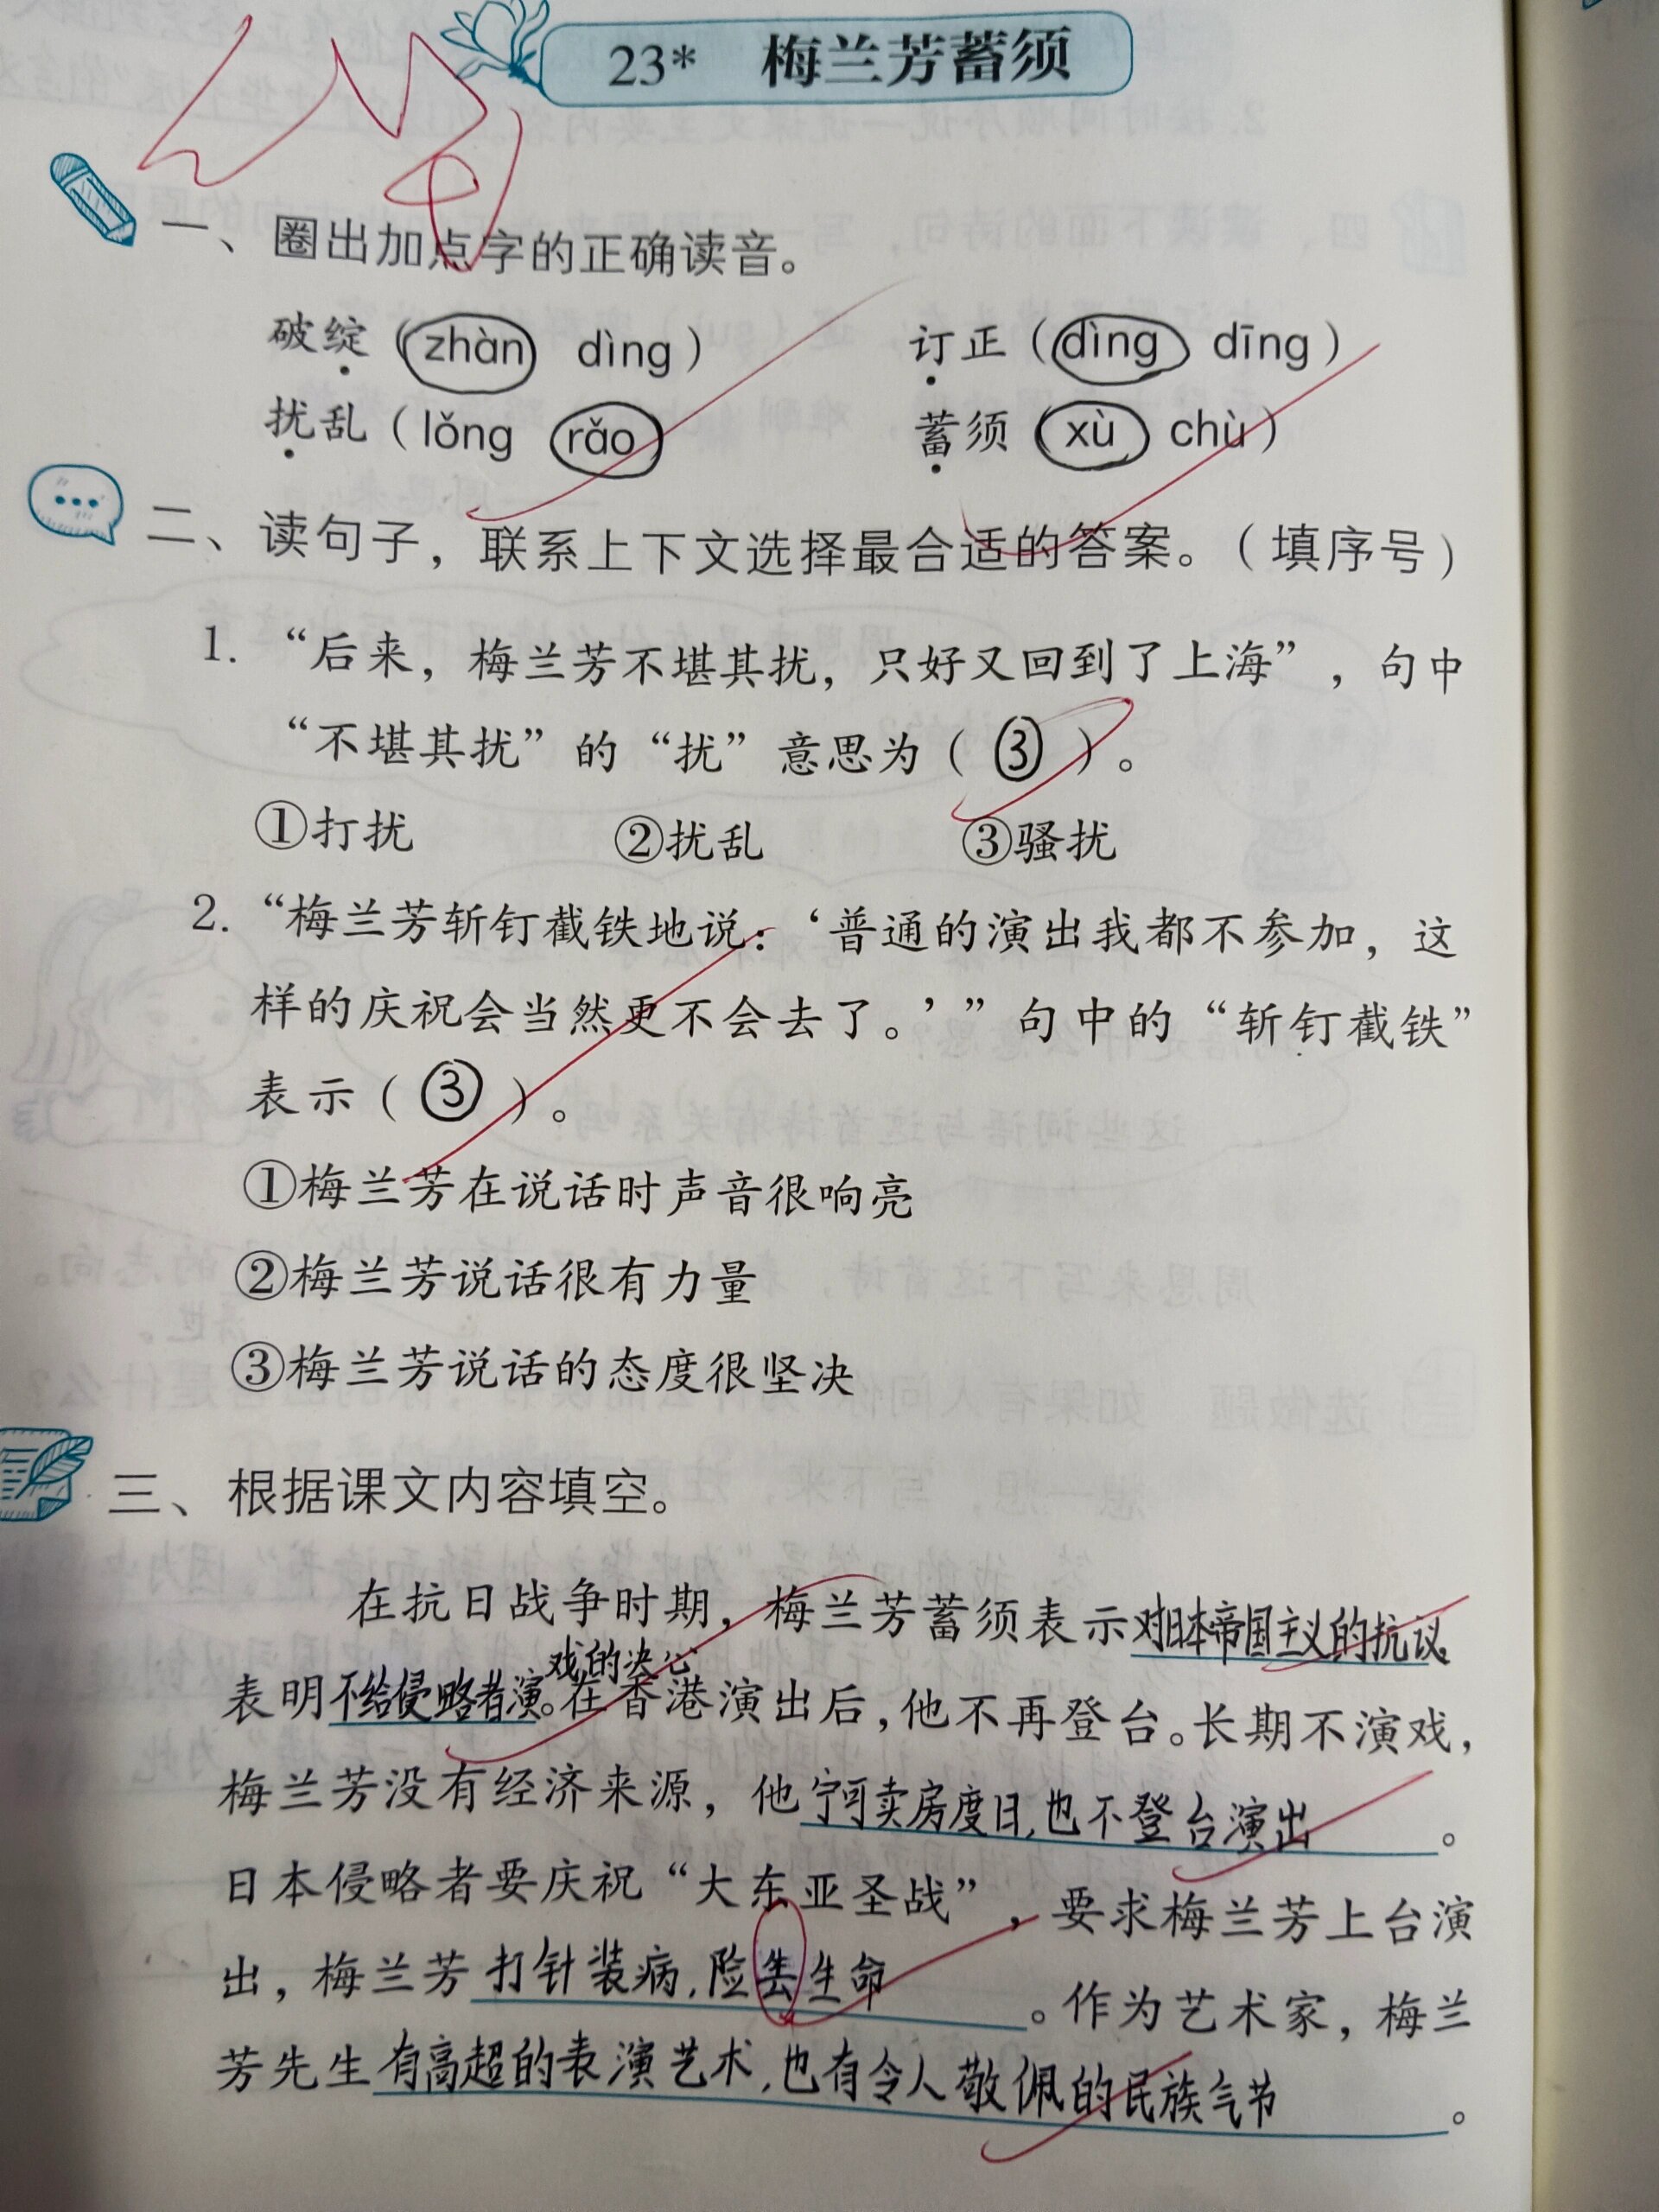 23* 梅兰芳蓄须
一、圈出加点字的正确读音。
破绽（zhàn dìng） 订正（dìng dīng）
扰乱（lǒng rǎo） 蓄须（xù chù）
二、读句子，联系上下文选择最合适的答案。（填序号）
1. “后来，梅兰芳不堪其扰，只好又回到了上海”，句中
“不堪其扰”的“扰”意思为（③）。
①打扰 ②扰乱 ③骚扰
2. “梅兰芳斩钉截铁地说：‘普通的演出我都不参加，这
样的庆祝会当然更不会去了。’”句中的“斩钉截铁”
表示（③）。
①梅兰芳在说话时声音很响亮
②梅兰芳说话很有力量
③梅兰芳说话的态度很坚决
三、根据课文内容填空。
在抗日战争时期，梅兰芳蓄须表示对日本帝国主义的抗议，
表明不给侵略者演戏的决心。在香港演出后，他不再登台。长期不演戏，
梅兰芳没有经济来源，他宁可卖房度日，也不登台演出。
日本侵略者要庆祝“大东亚圣战”，要求梅兰芳上台演
出，梅兰芳打针装病，险丢生命。作为艺术家，梅兰
芳先生有高超的表演艺术，也有令人敬佩的民族气节。